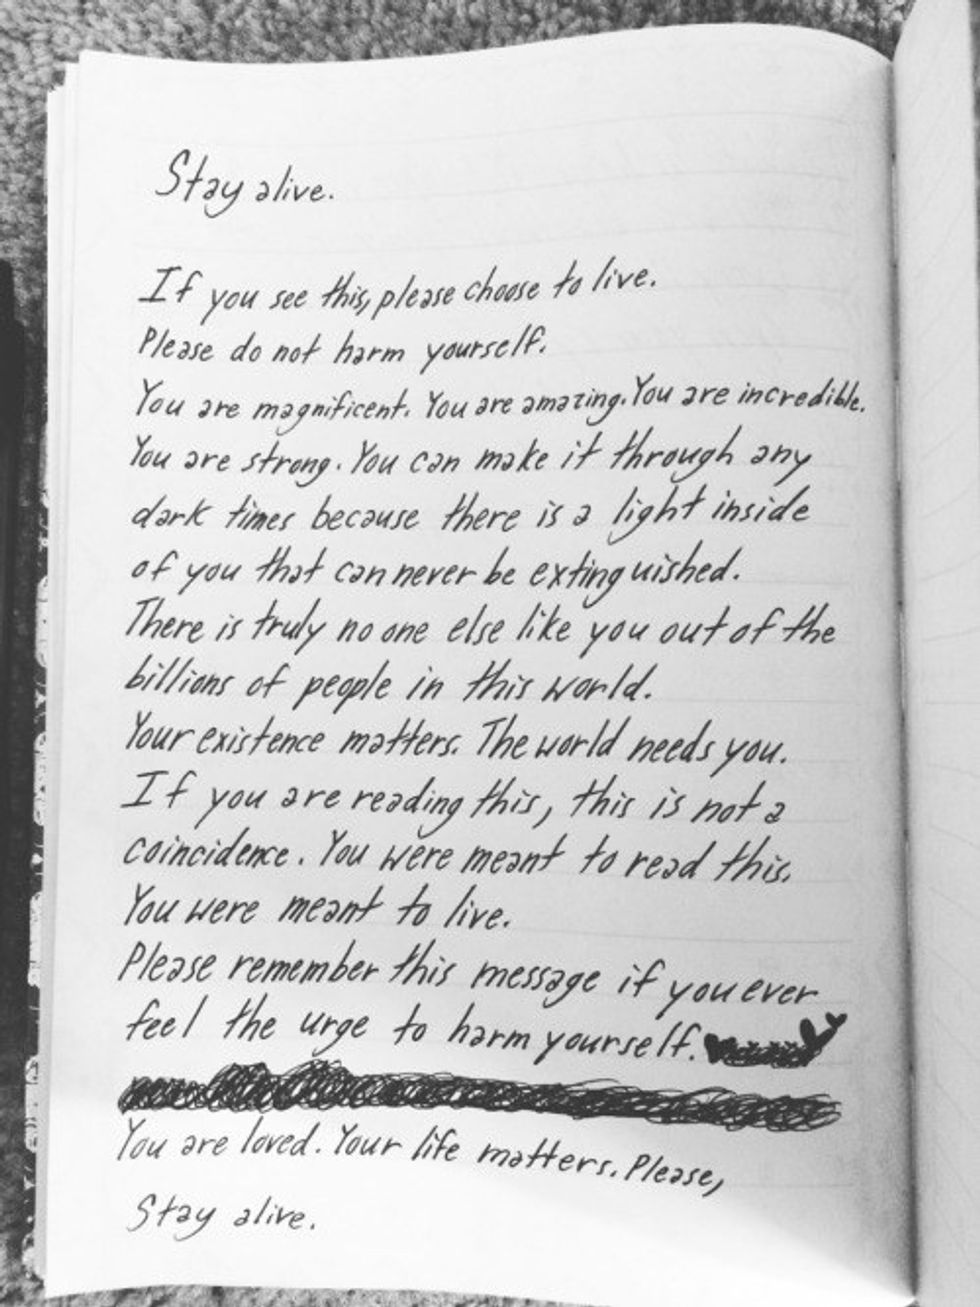 Stay alive.
If you see this, please choose to live.
Please do not harm yourself.
You are magnificent. You are amazing. You are incredible.
You are strong. You can make it through any
dark times because there is a light inside
of you that can never be extinguished.
There is truly no one else like you out of the
billions of people in this world.
Your existence matters. The world needs you.
If you are reading this, this is not a
coincidence. You were meant to read this.
You were meant to live.
Please remember this message if you ever
feel the urge to harm yourself.
You are loved. Your life matters. Please,
Stay alive.